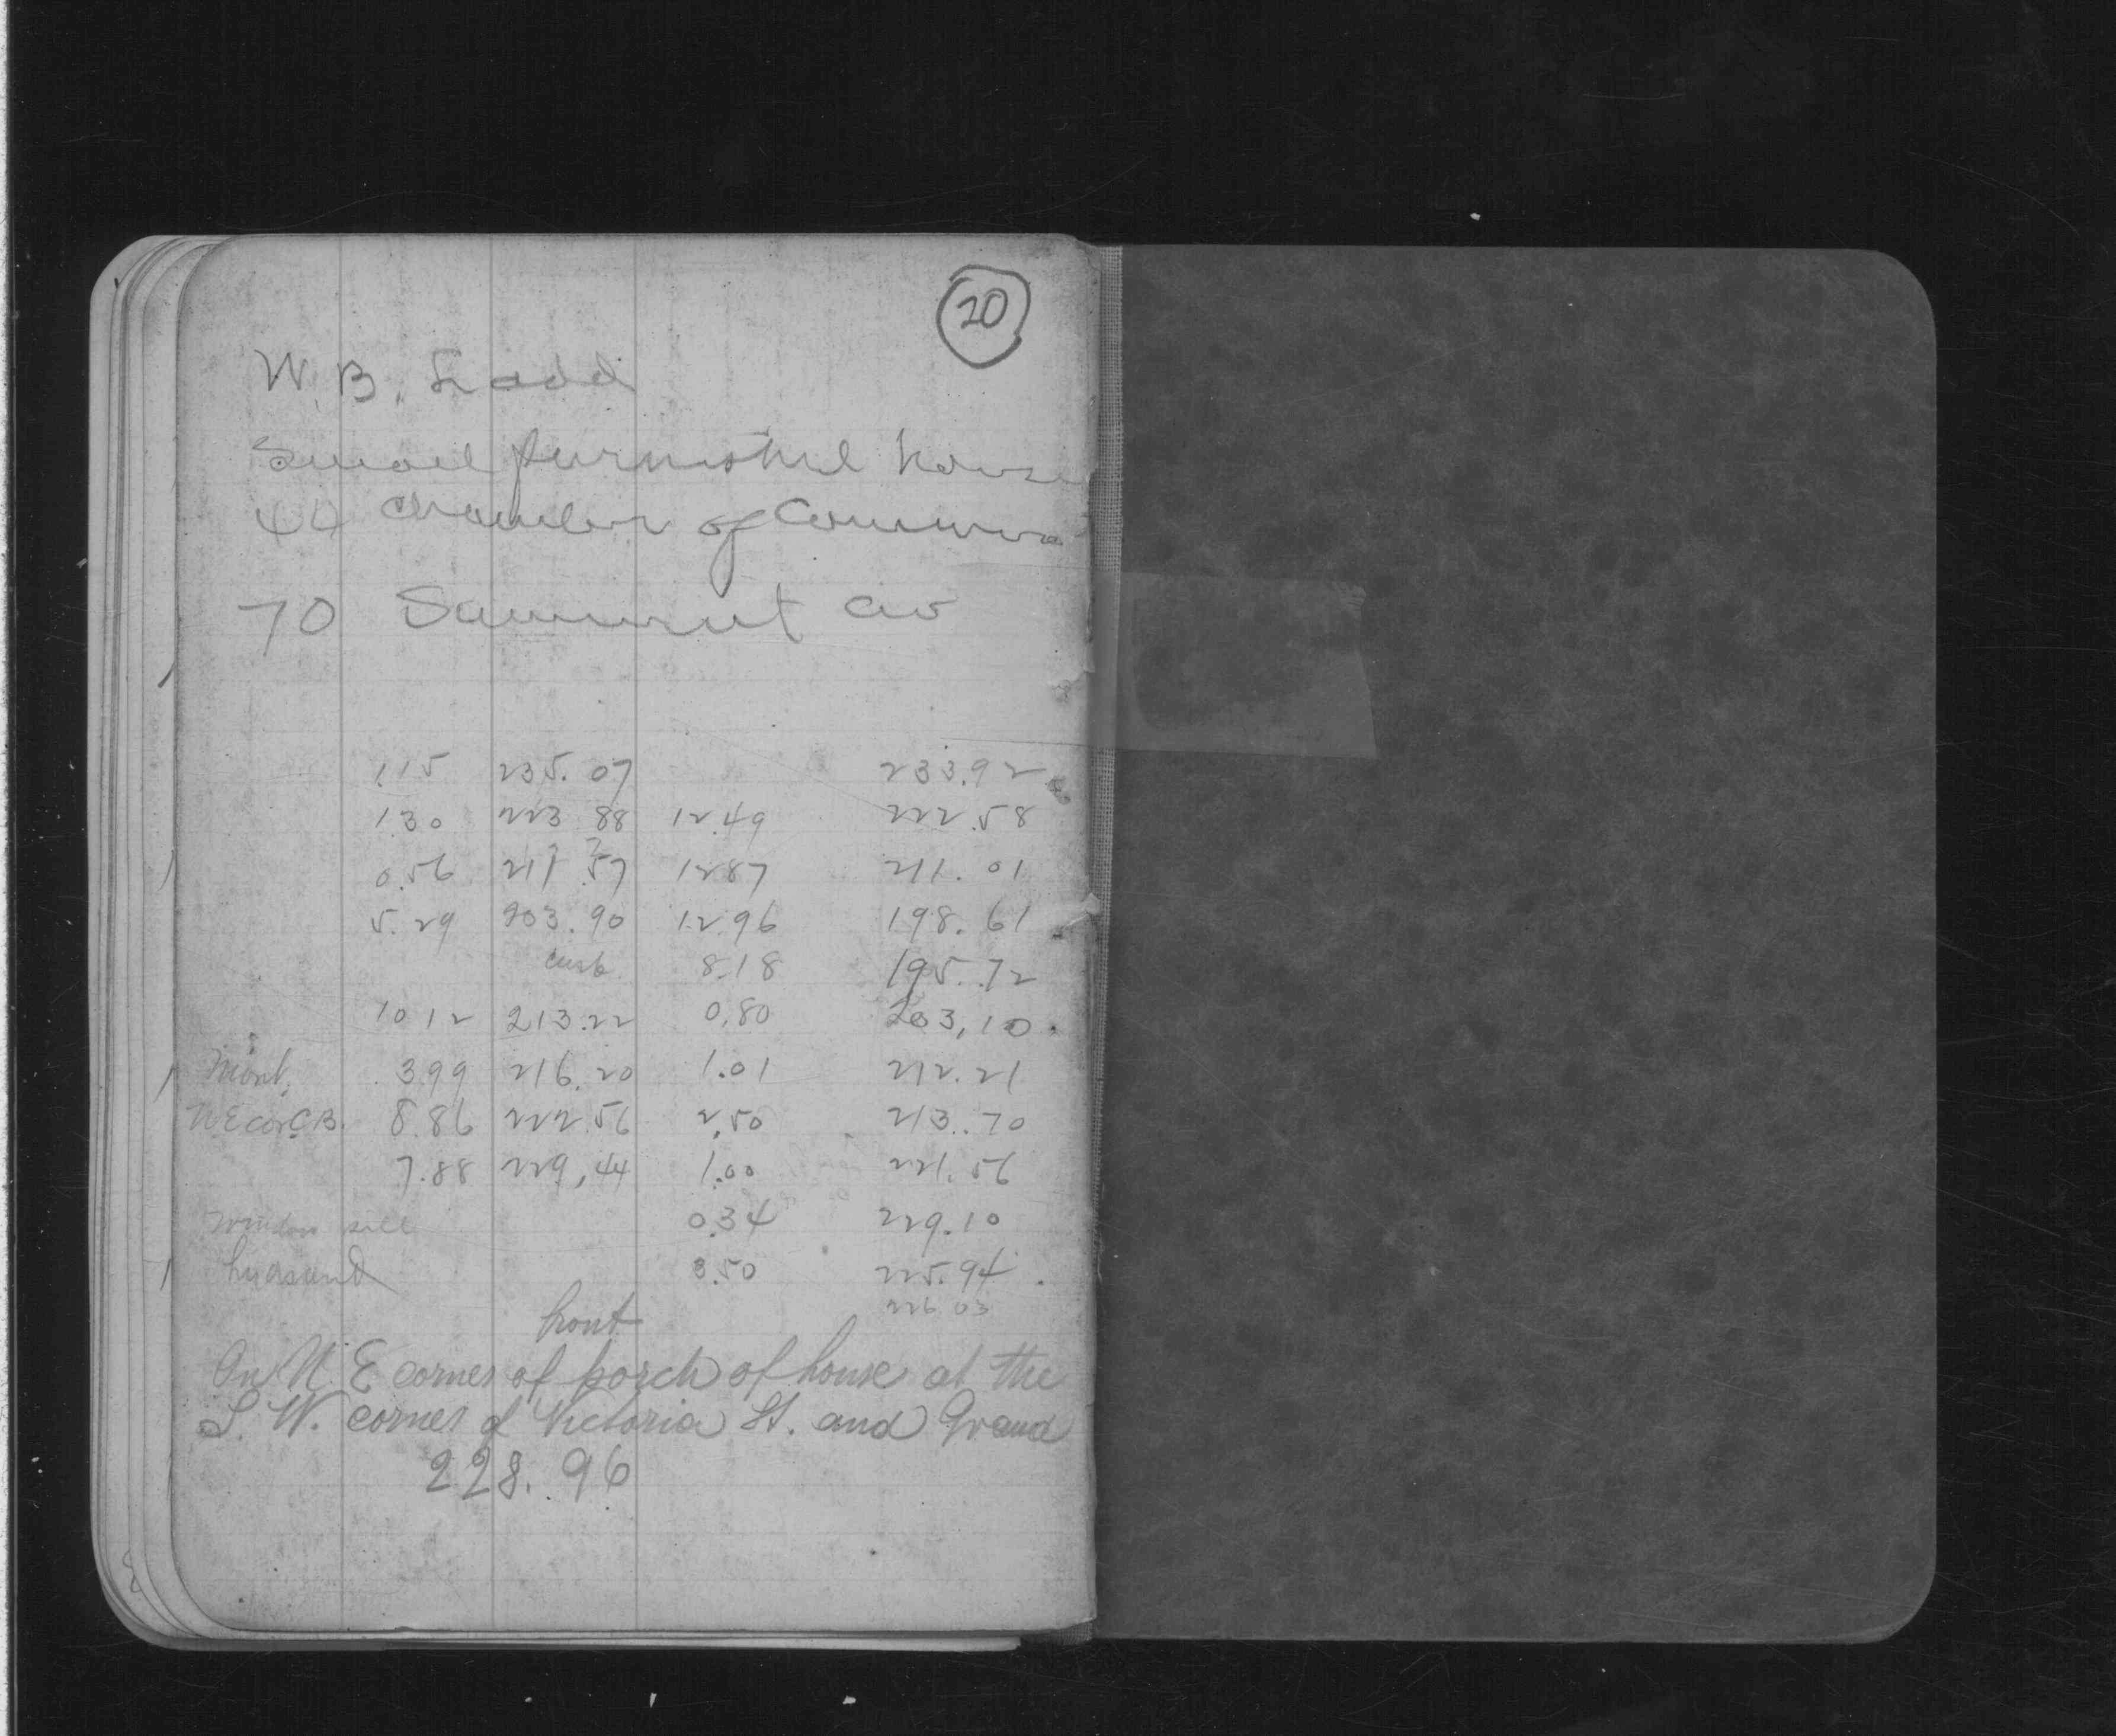 20
W. B. Ladd
Small furnished house
44 Chamber of Commerce
70 Summit av
1.15 235.07 233.92
1.30 223.88 12.49 222.58
0.56 211.57 12.87 211.01
5.29 203.90 12.96 198.61
curb 8.18 195.72
10 12 213.22 0.80 203.10
3.99 216.20 1.01 212.21
N E cor C.B. 8.86 222.56 2.50 213.70
7.88 229.44 1.00 221.56
Window sill 0.34 229.10
3.50 225.94
226.03
front
On N. E corner of porch of house at the
S. W. corner of Victoria St. and Grand
228.96